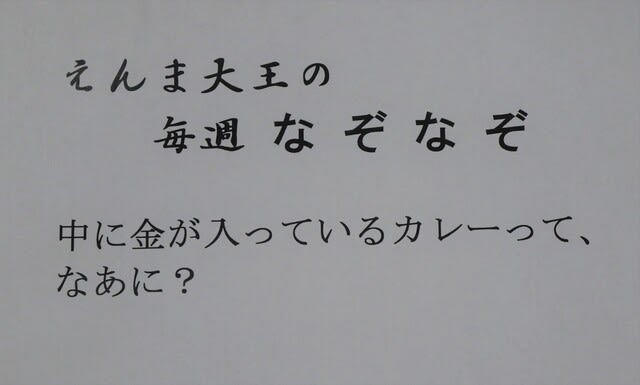 えんま大王の
毎週 なぞなぞ
中に金が入っているカレーって、
なあに？